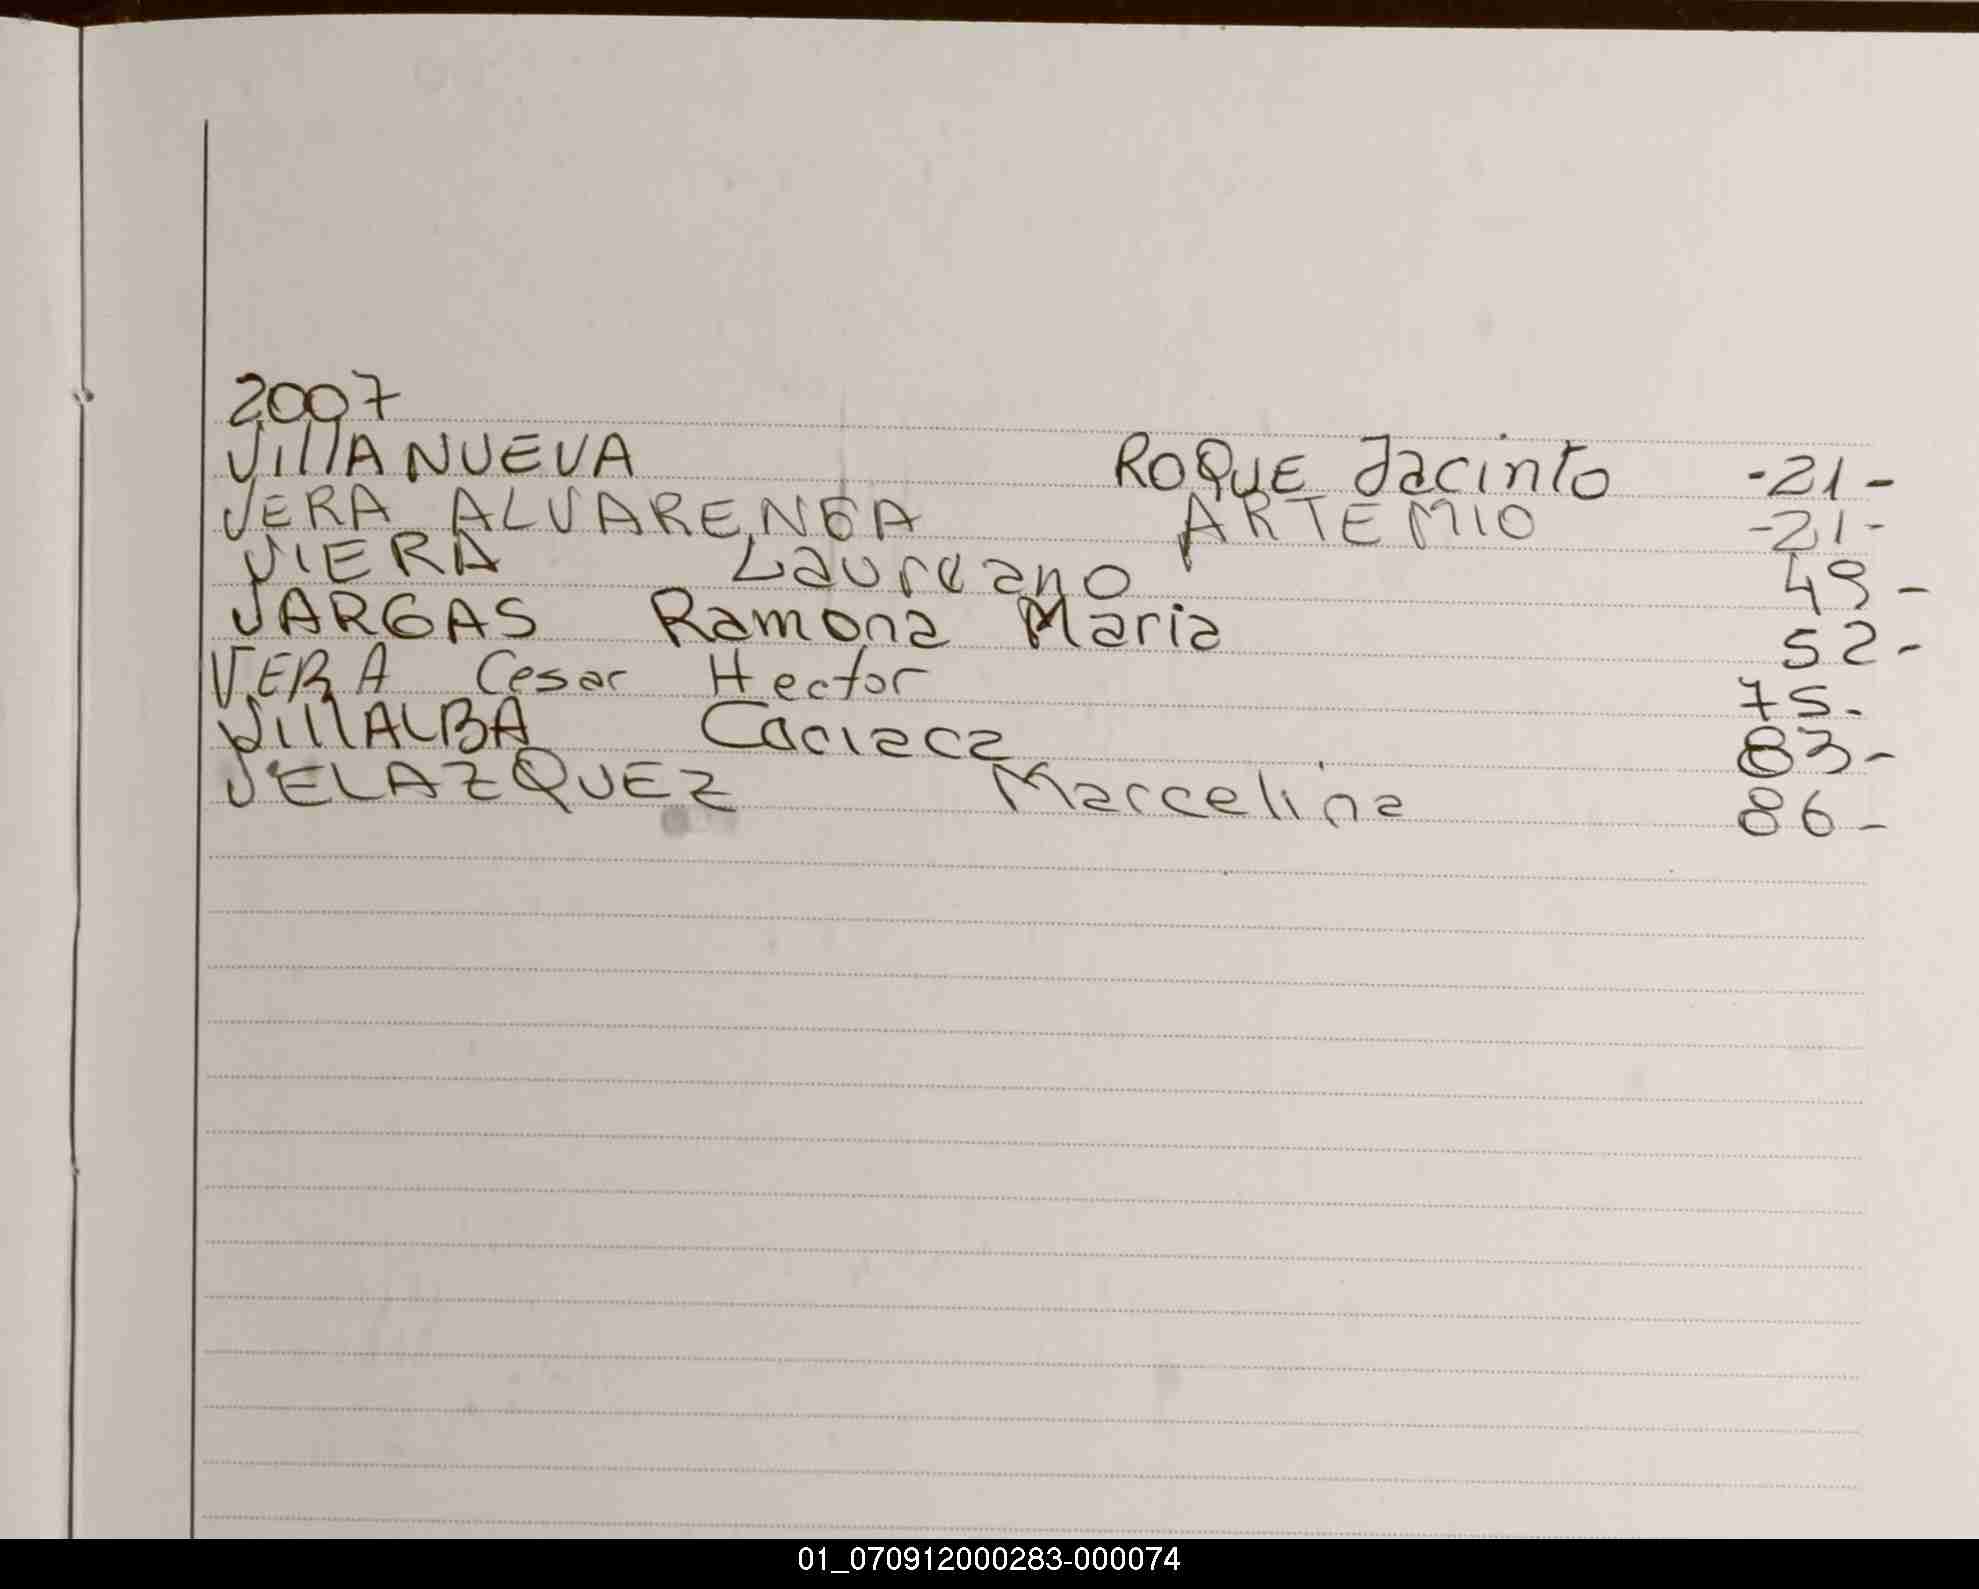 2007
VillANUEVA ROQUE Jacinto -21-
VERA ALVARENGA ARTEMIO -21-
VIERA Laureano 49-
VARGAS Ramona Maria 52-
VERA Cesar Hector 75-
VillALBA 83-
VELAZQUEZ Marcelina 86-
01_070912000283-000074